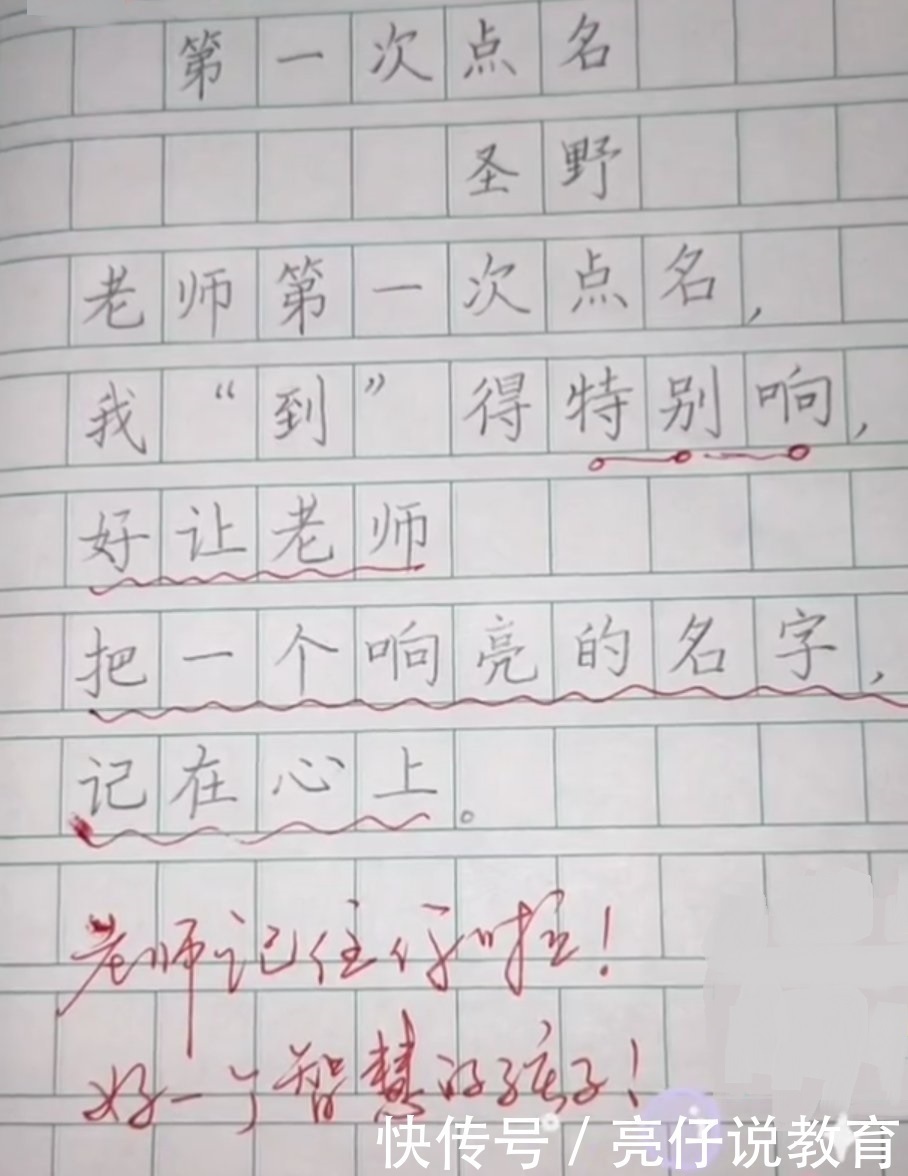 第一次点名
圣野
老师第一次点名，
我“到”得特别响，
好让老师
把一个响亮的名字，
记在心上。
老师记住你啦！
好一个智慧的孩子！
快传号／亮仔说教育